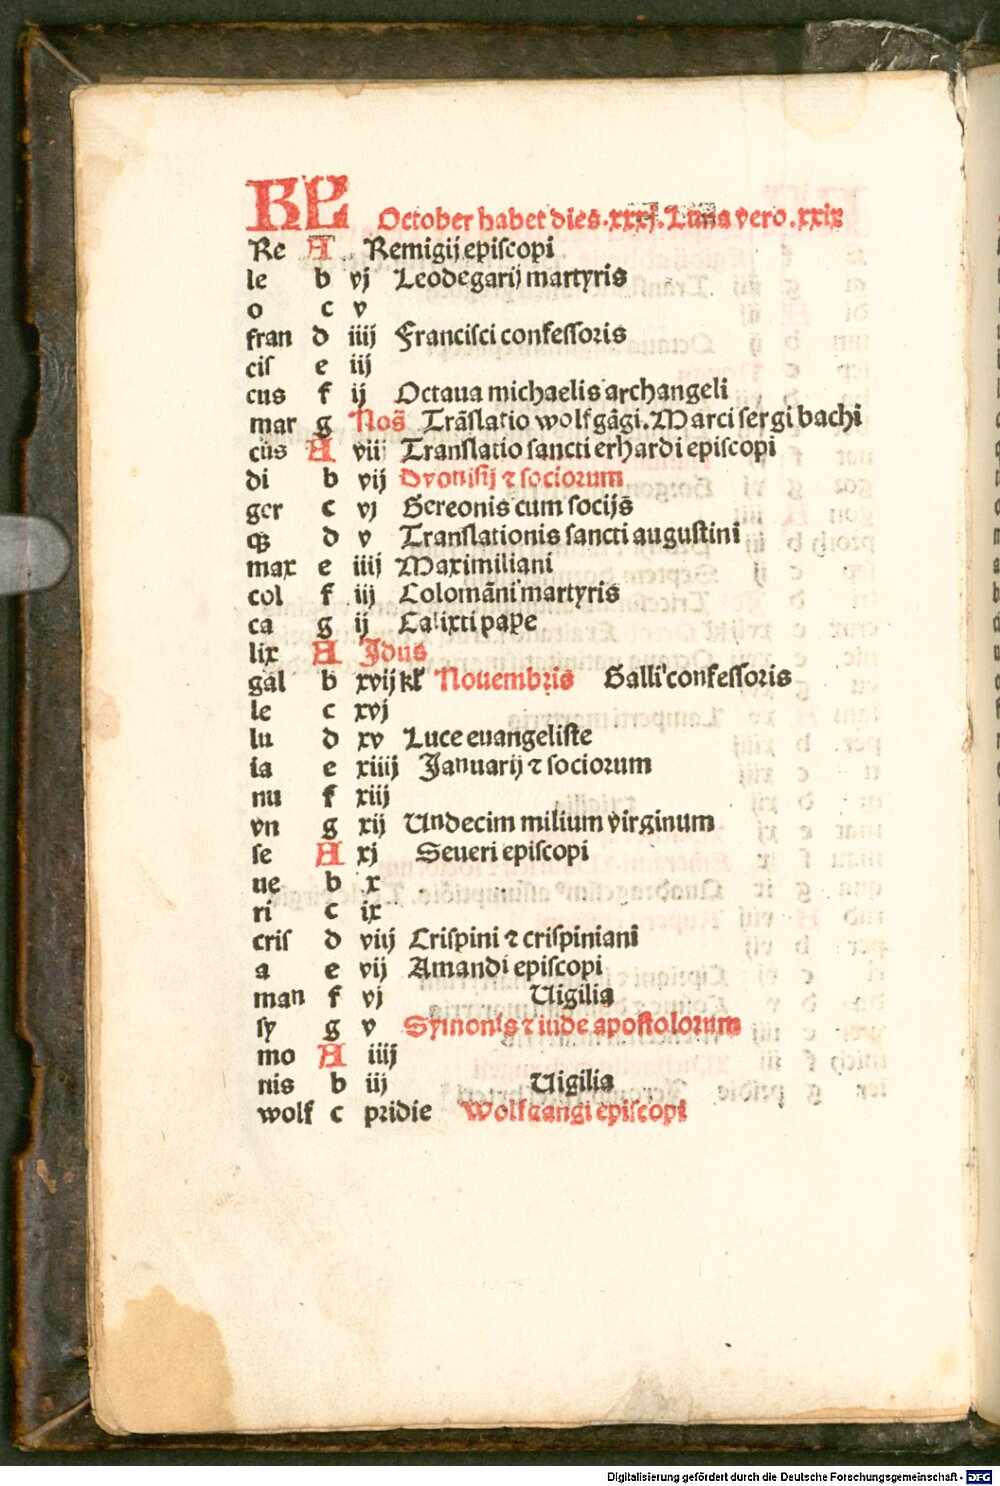 KL October habet dies .xxxj. Luna vero .xxix
Re A Remigij episcopi
le b vj Leodegarij martyris
o c v
fran d iiij Francisci confessoris
cis e iij
cus f ij Octaua michaelis archangeli
mar g Nos̄ Trāslatio wolfgāgi. Marci sergi bachi
cūs A viij Translatio sancti erhardi episcopi
di b vij Dyonisij ⁊ sociorum
ger c vj Gereonis cum socijs̄
qꝫ d v Translationis sancti augustini
max e iiij Maximiliani
col f iij Colomāni martyris
ca g ij Calixti pape
lix A Jdus
gal b xvij kl̄ Nouembris Galli confessoris
le c xvj
lu d xv Luce euangeliste
ia e xiiij Januarij ⁊ sociorum
nu f xiij
vn g xij Undecim milium virginum
se A xj Seueri episcopi
ue b x
ri c ix
cris d viij Crispini ⁊ crispiniani
a e vij Amandi episcopi
man f vj Uigilia
sy g v Symonis ⁊ iude apostolorum
mo A iiij
nis b iij Uigilia
wolf c pridie Wolfgangi episcopi
Digitalisierung gefördert durch die Deutsche Forschungsgemeinschaft - DFG